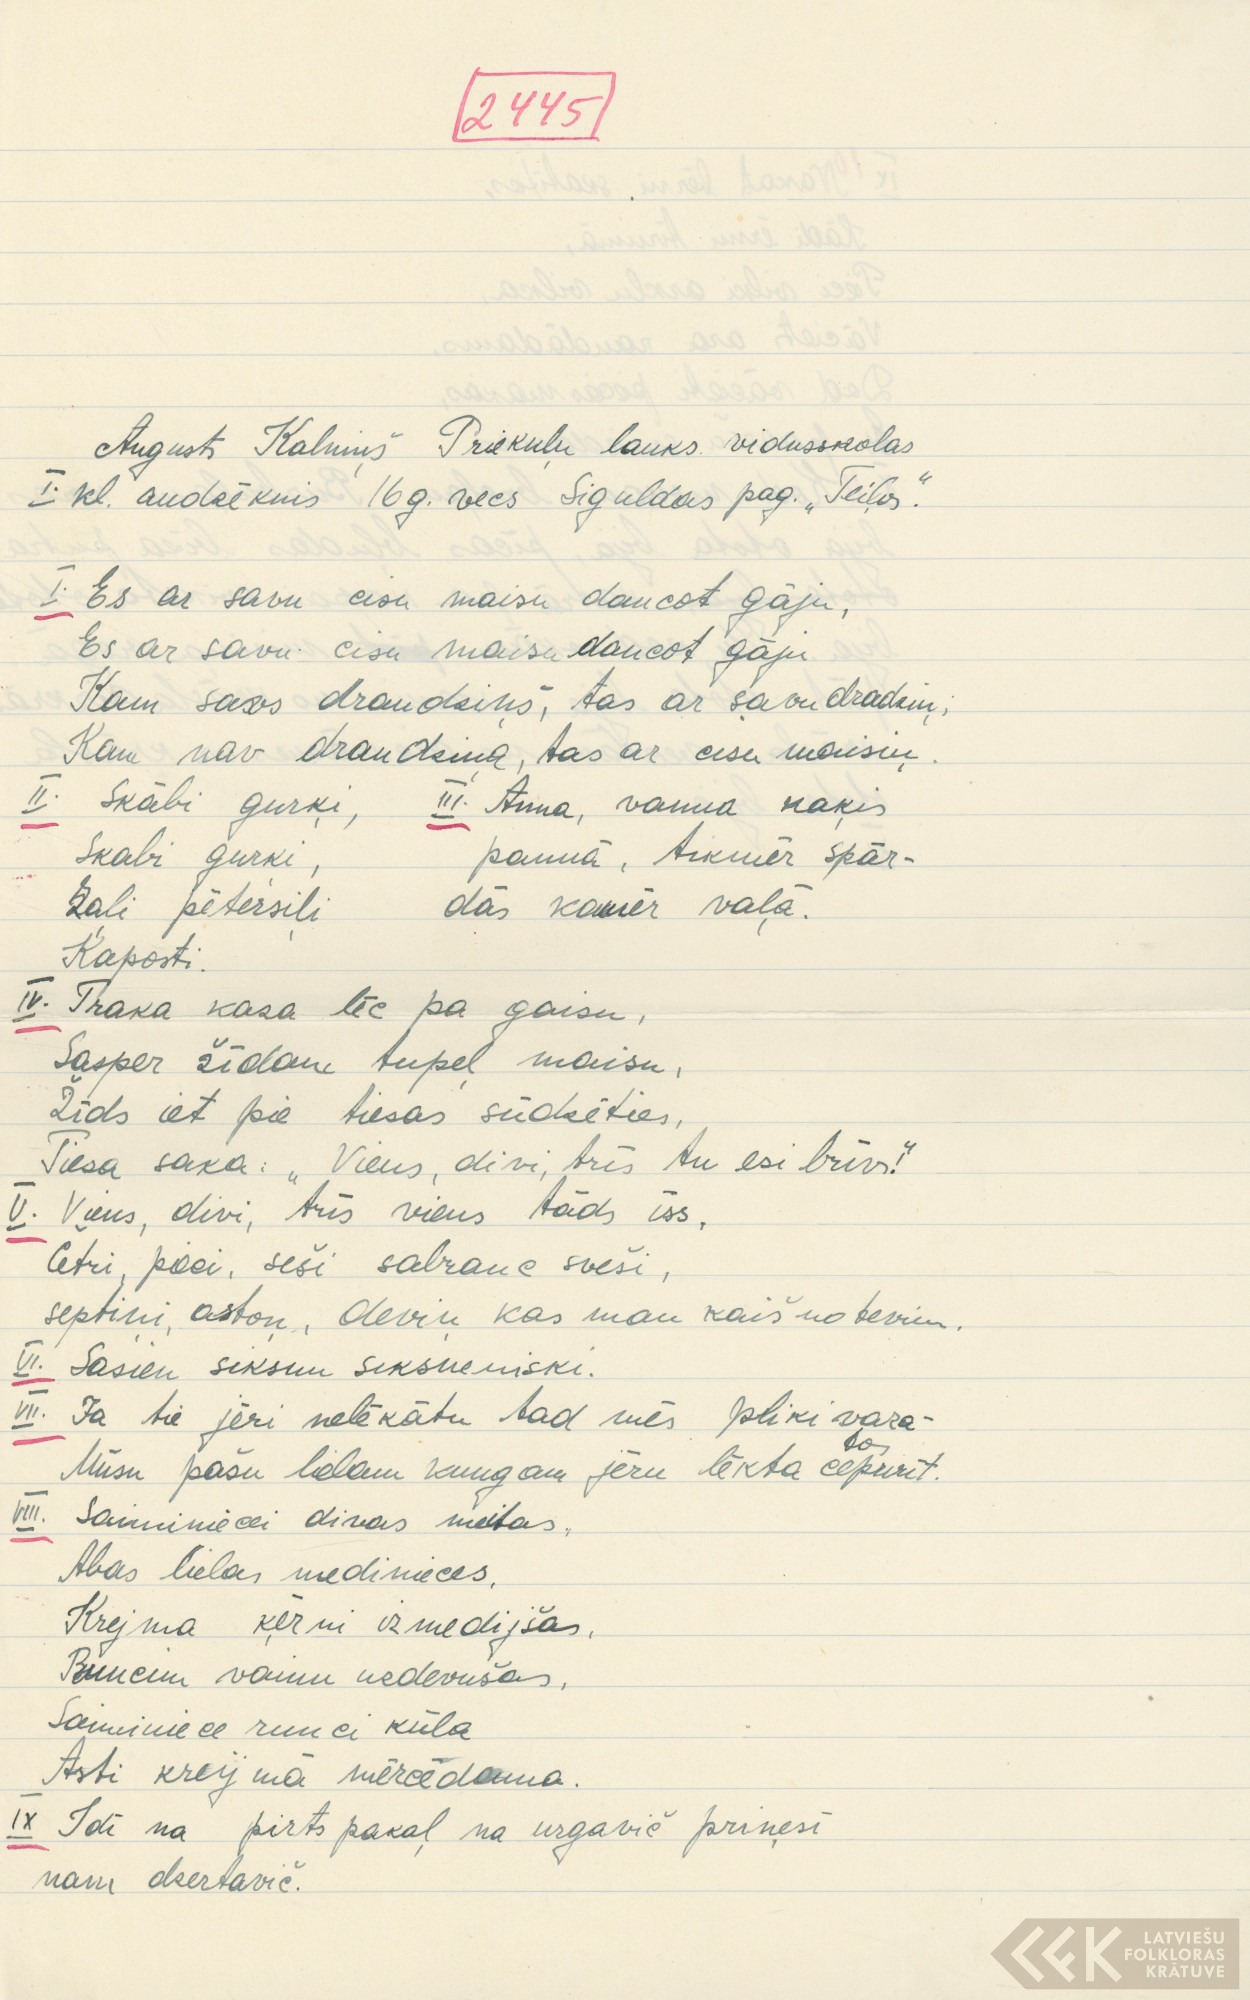 2445
Augusts Kalniņš Priekuļu lauks. vidusskolas
I. kl. audzēknis 16 g. vecs Siguldas pag. „Teiļos“.
I. Es ar savu cisu maisu dancot gāju,
Es ar savu cisu maisu dancot gāju
Kam savs draudziņš, tas ar savu dradziņ,
Kam nav draudziņa, tas ar cisu maisiņ.
II. Skābi gurķi,
Skabi gurķi,
Zaļi pētersiļi
Kaposti.
III. Anna, vanna kaķis
pannā, tikmēr spār-
dās kamēr vaļā.
IV. Traka kaza lēc pa gaisu,
Sasper žīdam tupeļ maisu,
Žīds iet pie tiesas sūdzēties,
Tiesa saka: „Viens, divi, trīs tu esi brīvs!“
V. Viens, divi, trīs viens tāds īss,
Četri, pieci, seši sabrauc sveši,
septiņi, astoņ, deviņ kas man kaiš no tevim.
VI. Sasien siksnu siksneniski.
VII. Ja tie jēri nelēkātu tad mēs pliki vara-
tos
Mūsu pašu lielam kungam jēru lēkta cepurīt.
VIII. Saimniecei divas meitas,
Abas lielas medinieces,
Krejma ķērni izmedijšas,
Runcim vainu uzdevušas,
Saimniece runci kūla
Asti kreijmā mērcēdama.
IX Idi na pirts pakaļ na urgavič priņesi
nam dzertavič.
LATVIEŠU
FOLKLORAS
KRĀTUVE